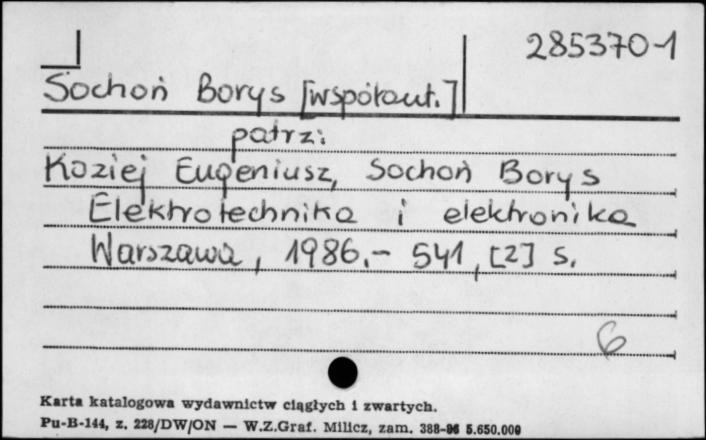 285370-1
Sochoń Borys [współaut.]
patrz:
Koziej Eugeniusz, Sochoń Borys
Elektrotechnika i elektronika
Warszawa, 1986.- 541, [2] s.
6
Karta katalogowa wydawnictw ciągłych i zwartych.
Pu-B-144, z. 228/DW/ON — W.Z.Graf. Milicz, zam. 388-86 5.650.000